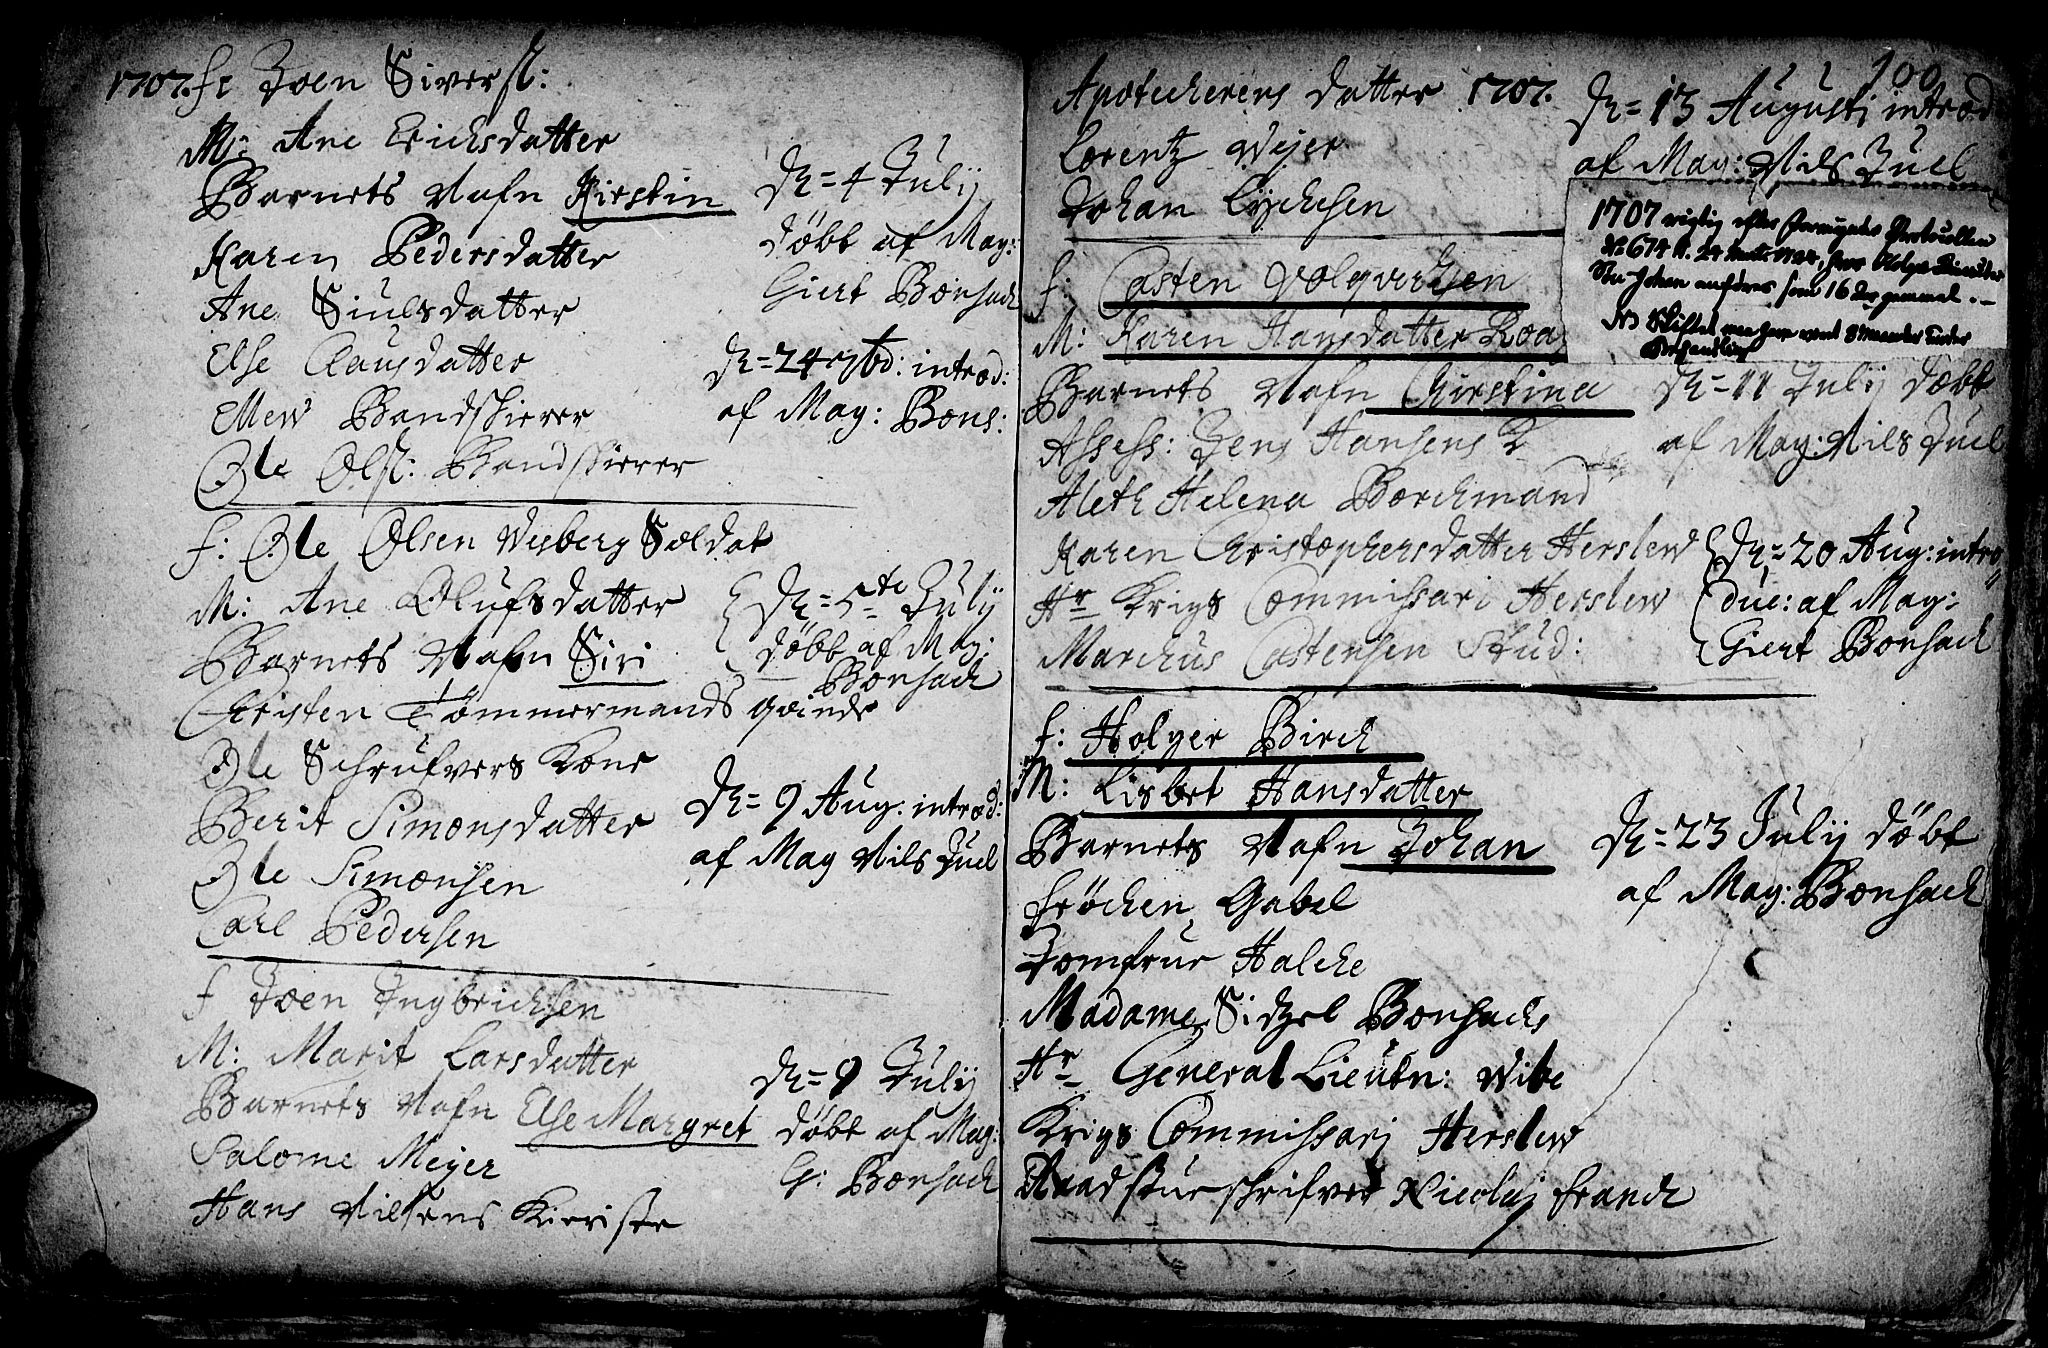 1707. f: Joen Siversl:
M: Ane Erichsdatter
Barnets Nafn Kirstin
Karen Pedersdatter
Ane Siulsdatter
Else Clausdatter
Ellew Bandskierer
Ole Olsl: Bandskierer
D = 4 July
döbt af Mag:
Giert Bonsach
D = 24 7tbd: introd:
af Mag: Bons:
f: Ole Olsen Wisberg Soldat
M: Ane Olufsdatter
Barnets Nafn Siri
Christen Tömmermands qvinde
Ole Schrufvers Kone
Berit Simonsdatter
Ole Simonsen
Carl Pedersen
D = 5te July
döbt af Mag:
Bonsach
D = 9 Aug: introd:
af Mag Nils Juel
f Joen Ingbrichsen
M: Marit Larsdatter
Barnets Nafn Else Margret
Salome Meyer
Hans Nilsens Kieriste
D = 9 July
döbt af Mag:
G: Bonsach
100.
Apotecherens datter 1707.
Lorentz Wejer
Johan Lychesen
D = 13 Augusti introd
af Mag: Nils Juel
1707 rigtig efter
No 674
Johan anföres som 16 Aar gammel
f: Casten Volqvertsen
M: Karen Hansdatter
Barnets Nafn Christina
Assess: Jens Hansens K
Aleth Helena Borchmand
Karen Christophersdatter Herslew
Hr Krigs Commissari Herslew
Marchus Castensen Stud:
D = 11 July döbt
af Mag: Nils Juel
D = 20 Aug: intro
duc: af Mag:
Giert Bonsach
f: Holger Birch
M: Lisbet Hansdatter
Barnets Nafn Johan
fröchen Gabel
Jomfrue Halche
Madame Sidzel Bonsachs
Hr General Lieutn: Wibe
Krigs Commissari Herslew
Raadstueschrifver Nicolaj franch
D = 23 July döbt
af Mag: Bonsach